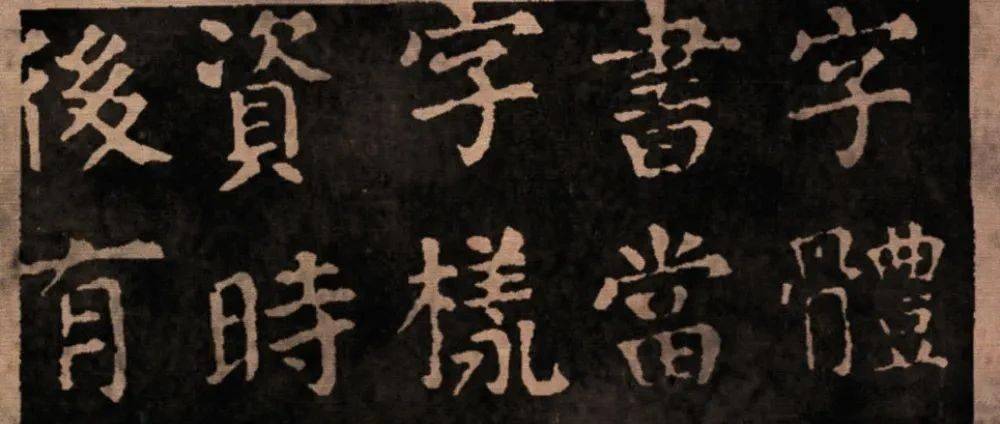 字體
書當
字樣
資時
後有